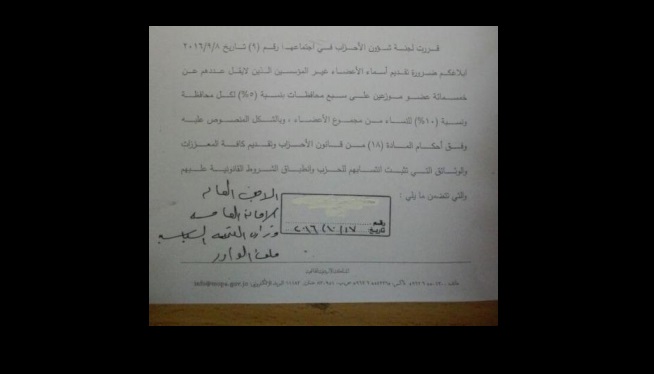 قررت لجنة شؤون الأحزاب في اجتماعها رقم (٦) تاريخ ٢٠١٦/٩/٨
ابلاغكم ضرورة تقديم أسماء الأعضاء غير المؤسسين الذين لايقل عددهم عن
خمسمائة عضو موزعين على سبع محافظات بنسبة (٥%) لكل محافظة
ونسبة (١٠%) للنساء من مجموع الأعضاء ، وبالشكل المنصوص عليه
وفق أحكام المادة (١٨) من قانون الأحزاب وتقديم كافة المعززات
والوثائق التي تثبت انتسابهم للحزب وانطباق الشروط القانونية عليهم
والتي تتضمن ما يلي :
الامين العام
الامانة العامة
رقم
تاريخ
وزارة التنمية السياسية
ملف الوارد
المملكة الأردنية الهاشمية